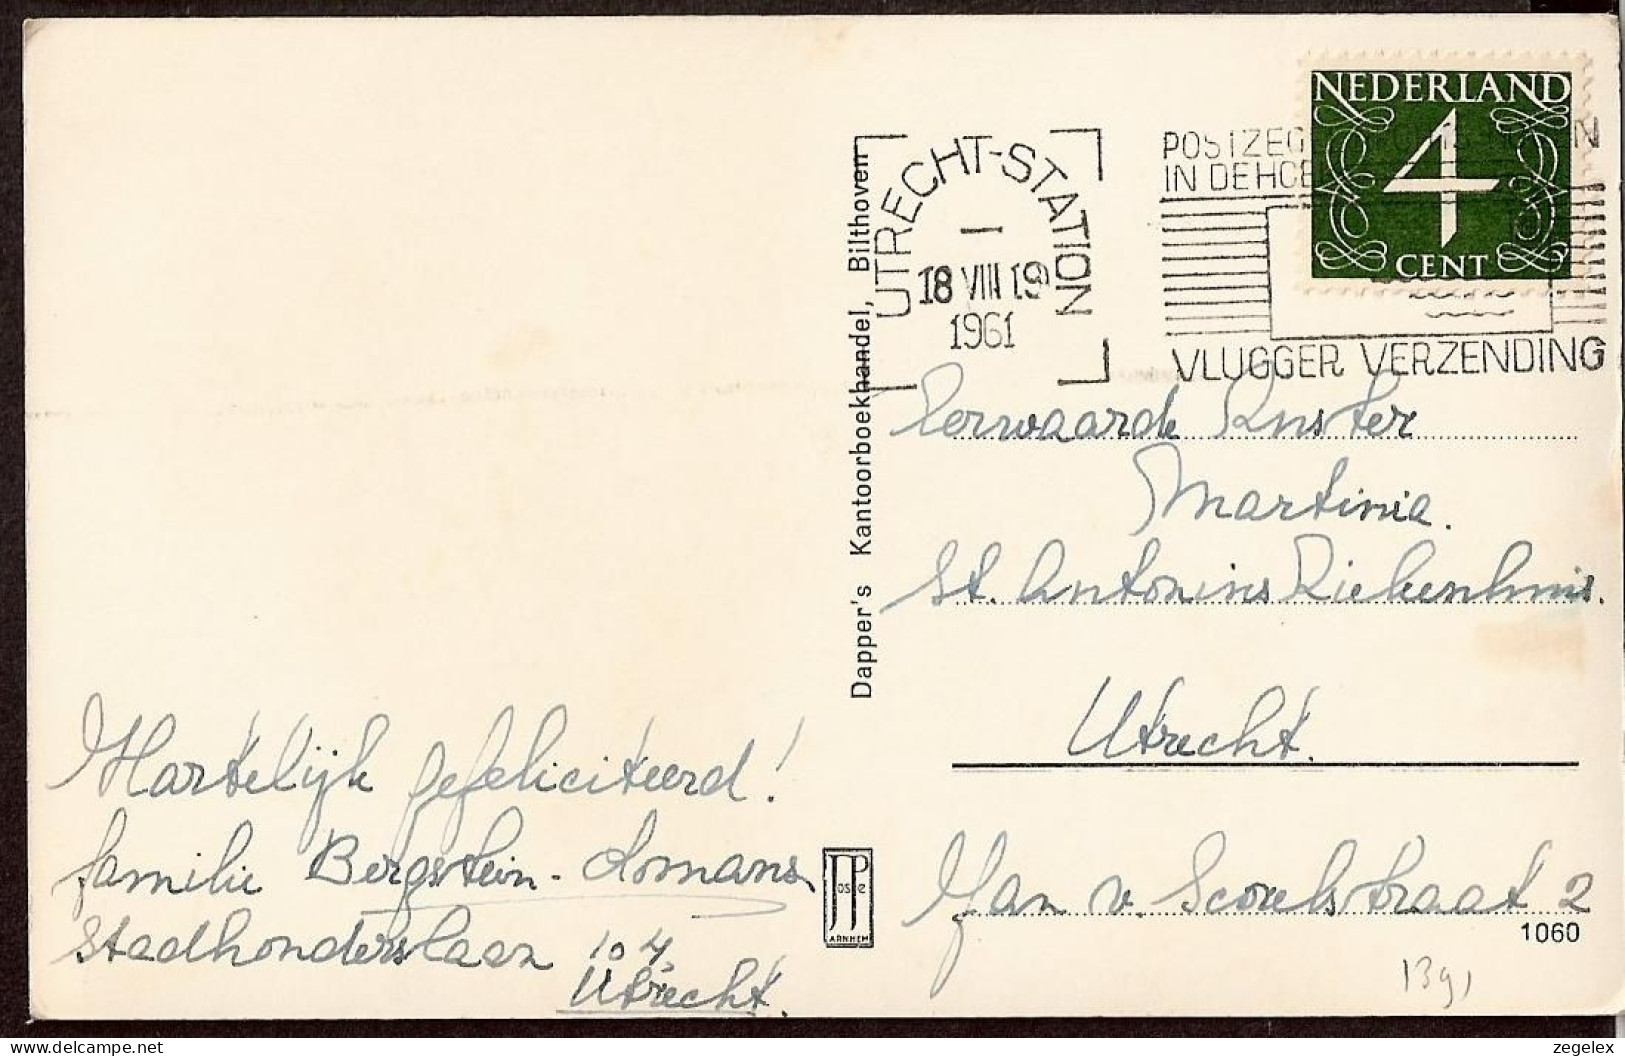 NEDERLAND
4
CENT
UTRECHT-STATION
18 VIII 19
1961
POSTZEG
IN DE HOE
VLUGGER VERZENDING
Dapper's Kantoorboekhandel, Bilthoven
Eerwaarde Zuster
Martinia.
St. Antonius Ziekenhuis.
Utrecht.
Jan v. Scorelstraat 2
1060
1391
Hartelijk gefeliciteerd!
familie Bergstein - Lomans
Stadhouderslaan 104,
Utrecht.
JosPe
ARNHEM
zegelex
https://www.delcampe.net